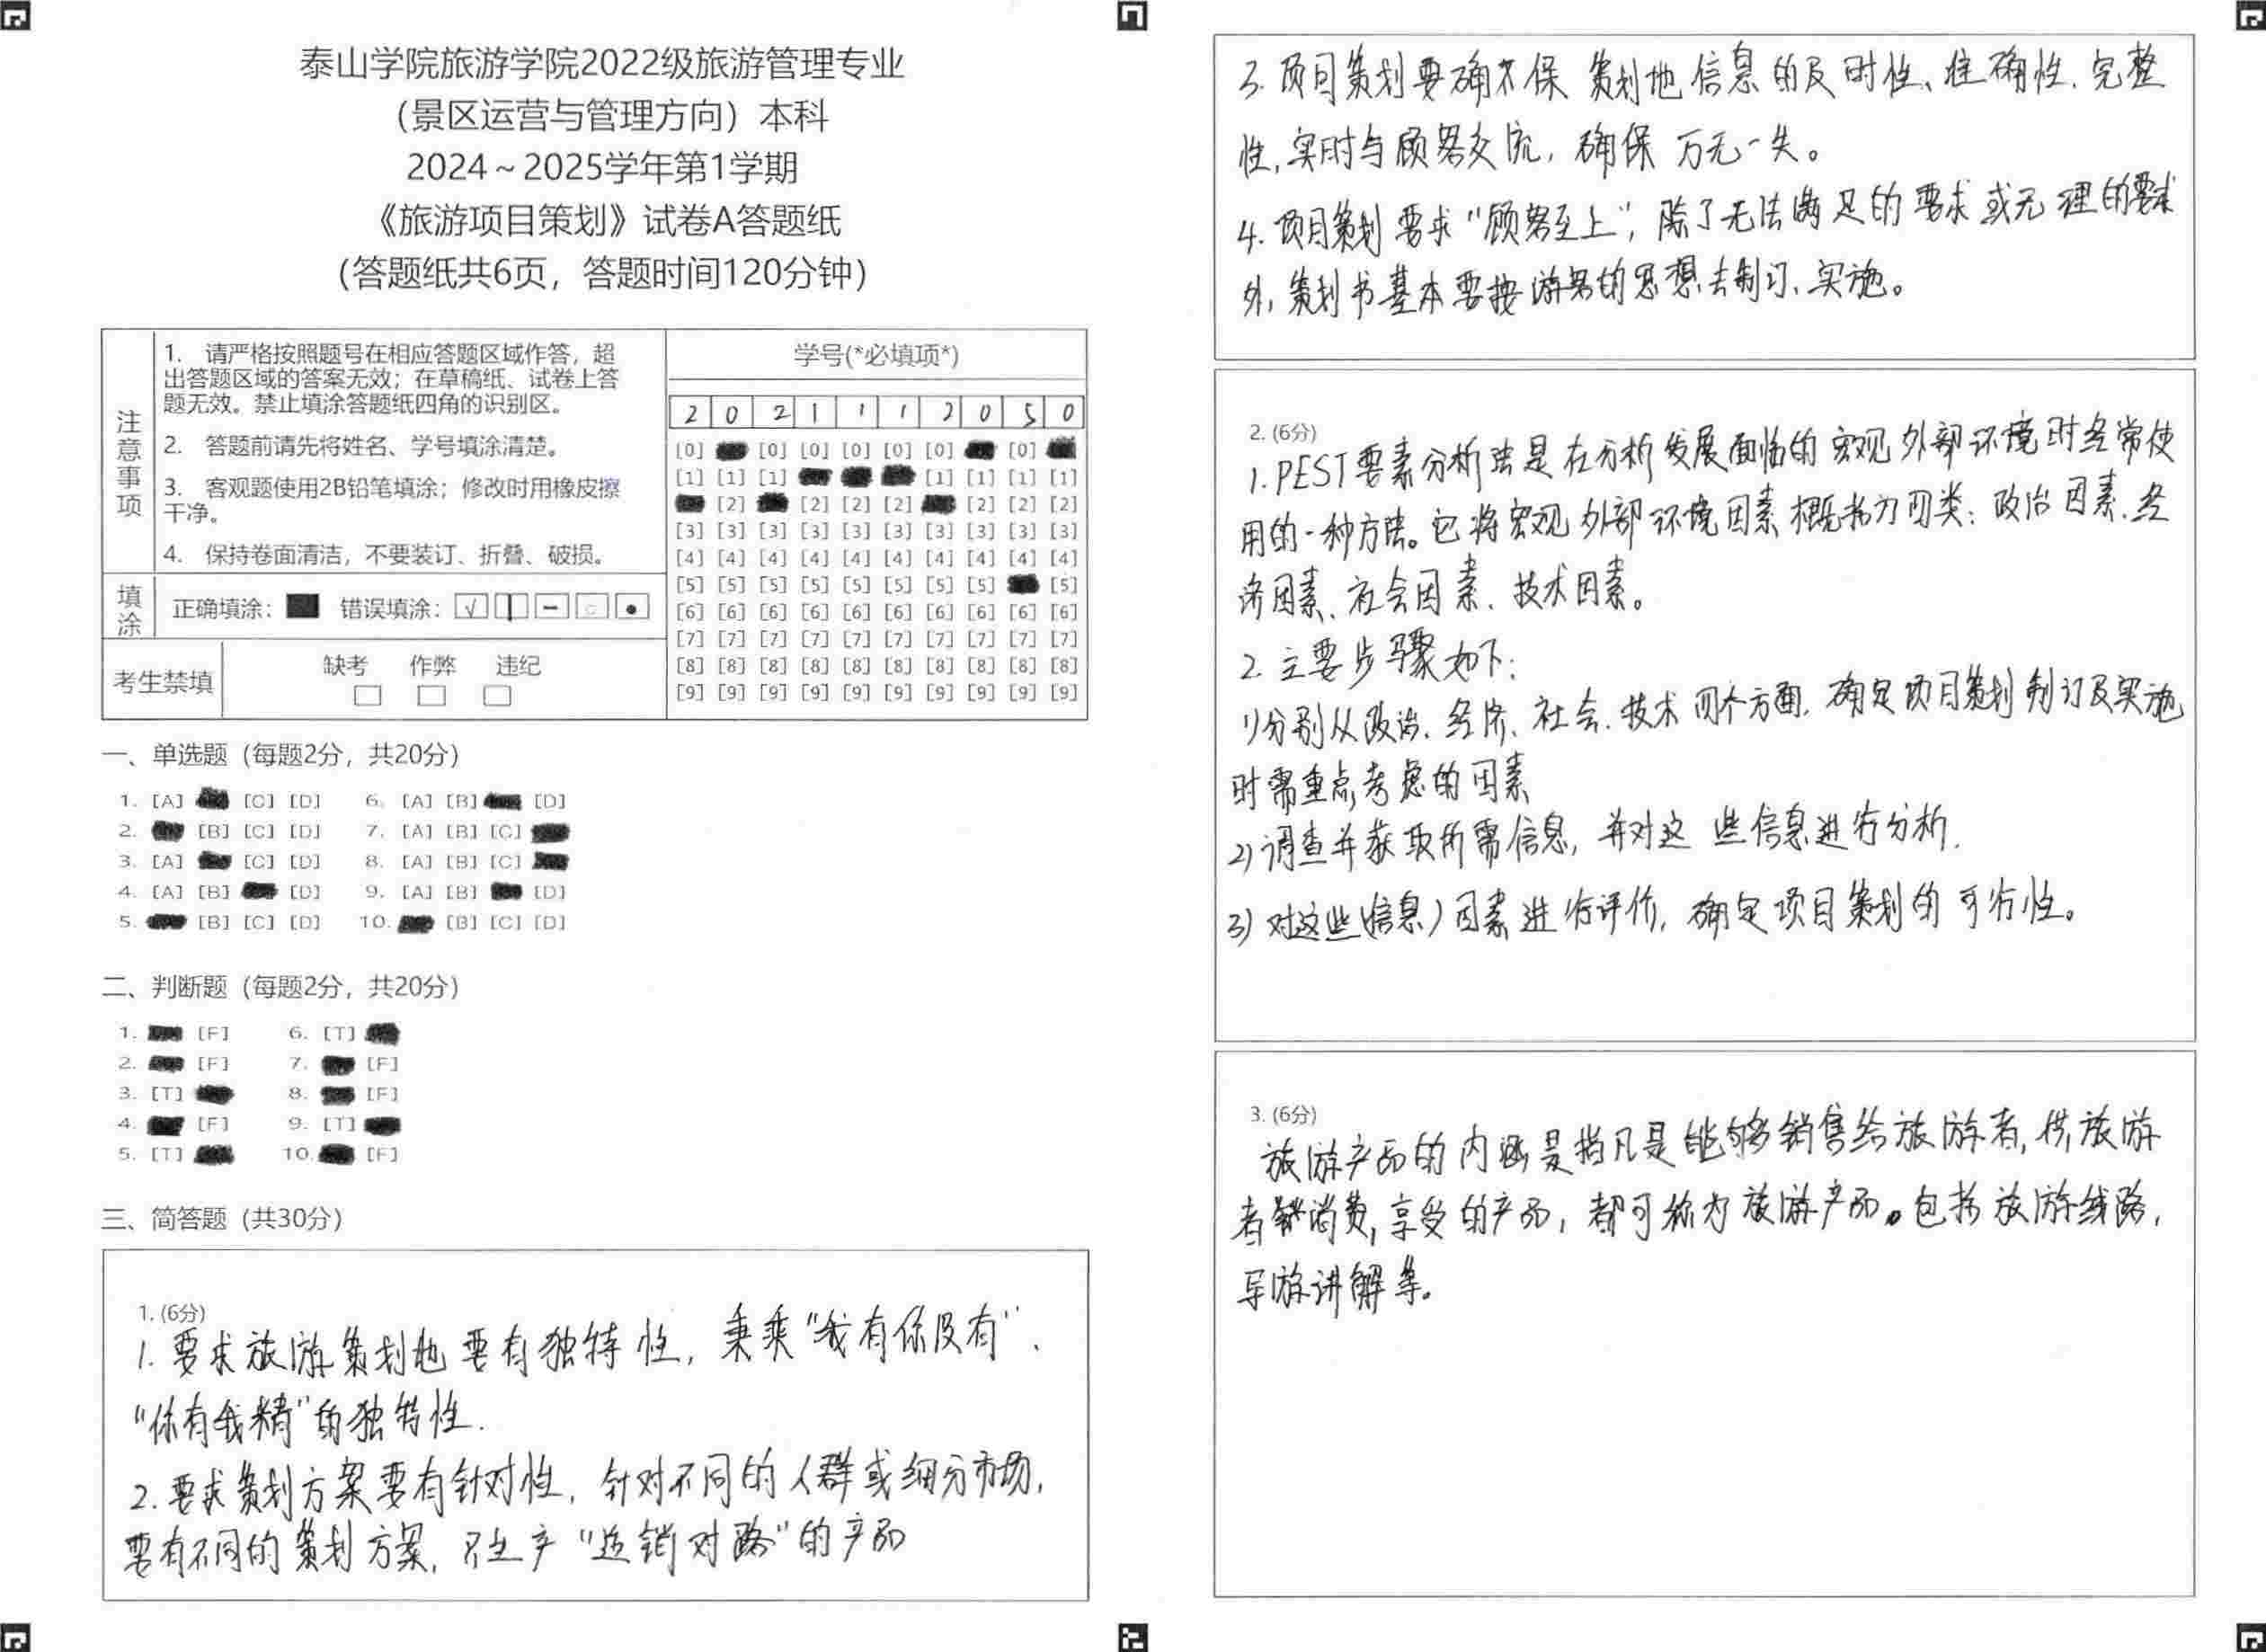 泰山学院旅游学院2022级旅游管理专业
（景区运营与管理方向）本科
2024～2025学年第1学期
《旅游项目策划》试卷A答题纸
（答题纸共6页，答题时间120分钟）
注意事项
1. 请严格按照题号在相应答题区域作答，超
出答题区域的答案无效；在草稿纸、试卷上答
题无效。禁止填涂答题纸四角的识别区。
2. 答题前请先将姓名、学号填涂清楚。
3. 客观题使用2B铅笔填涂；修改时用橡皮擦
干净。
4. 保持卷面清洁，不要装订、折叠、破损。
填涂 正确填涂： 错误填涂：
考生禁填 缺考 作弊 违纪
学号(*必填项*)
2 0 2 1 1 1 2 0 5 0
[0] [0] [0] [0] [0] [0] [0]
[1] [1] [1] [1] [1] [1] [1]
[2] [2] [2] [2] [2] [2] [2]
[3] [3] [3] [3] [3] [3] [3] [3] [3] [3]
[4] [4] [4] [4] [4] [4] [4] [4] [4] [4]
[5] [5] [5] [5] [5] [5] [5] [5] [5]
[6] [6] [6] [6] [6] [6] [6] [6] [6] [6]
[7] [7] [7] [7] [7] [7] [7] [7] [7] [7]
[8] [8] [8] [8] [8] [8] [8] [8] [8] [8]
[9] [9] [9] [9] [9] [9] [9] [9] [9] [9]
一、单选题（每题2分，共20分）
1. [A] [C] [D] 6. [A] [B] [D]
2. [B] [C] [D] 7. [A] [B] [C]
3. [A] [C] [D] 8. [A] [B] [C]
4. [A] [B] [D] 9. [A] [B] [D]
5. [B] [C] [D] 10. [B] [C] [D]
二、判断题（每题2分，共20分）
1. [F] 6. [T]
2. [F] 7. [F]
3. [T] 8. [F]
4. [F] 9. [T]
5. [T] 10. [F]
三、简答题（共30分）
1. (6分)
1. 要求旅游策划地要有独特性，秉乘“我有你没有”、
“你有我精”的独特性.
2. 要求策划方案要有针对性，针对不同的人群或细分市场，
要有不同的策划方案，只生产“适销对路”的产品
3. 项目策划要确保 策划地信息的及时性、准确性、完整
性，实时与顾客交流，确保万无一失。
4. 项目策划要求“顾客至上”，除了无法满足的要求或无理的要求
外，策划书基本要按游客的思想去制订、实施。
2. (6分)
1. PEST要素分析法是在分析发展面临的宏观外部环境时经常使
用的一种方法。它将宏观外部环境因素概括为四类：政治因素、经
济因素、社会因素、技术因素。
2. 主要步骤如下：
1)分别从政治、经济、社会、技术四个方面，确定项目策划制订及实施
时需重点考虑的因素
2)调查并获取所需信息，并对这些信息进行分析.
3)对这些(信息)因素进行评价，确定项目策划的可行性。
3. (6分)
旅游产品的内涵是指凡是能够销售给旅游者，供旅游
者消费，享受的产品，都可称为旅游产品。包括旅游线路，
导游讲解等。